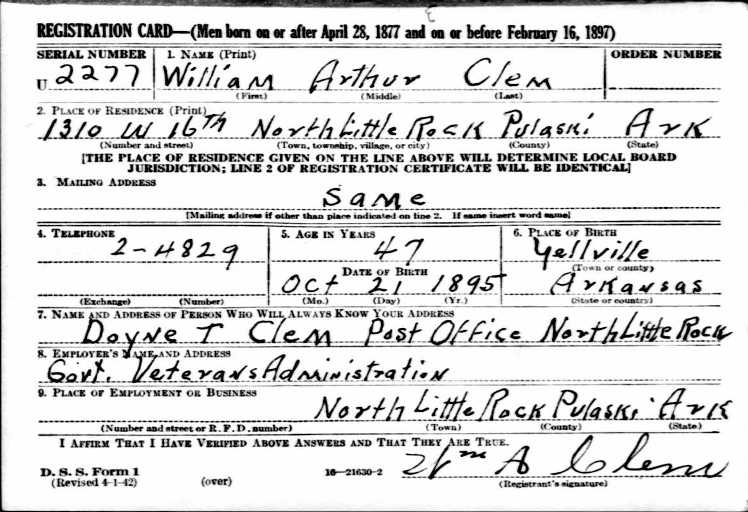 REGISTRATION CARD—(Men born on or after April 28, 1877 and on or before February 16, 1897)
SERIAL NUMBER 1. NAME (Print) ORDER NUMBER
U 2277 William Arthur Clem
(First) (Middle) (Last)
2. PLACE OF RESIDENCE (Print)
1310 W 16TH North Little Rock Pulaski Ark
(Number and street) (Town, township, village, or city) (County) (State)
[THE PLACE OF RESIDENCE GIVEN ON THE LINE ABOVE WILL DETERMINE LOCAL BOARD
JURISDICTION; LINE 2 OF REGISTRATION CERTIFICATE WILL BE IDENTICAL]
3. MAILING ADDRESS
Same
[Mailing address if other than place indicated on line 2. If same insert word same]
4. TELEPHONE 5. AGE IN YEARS 6. PLACE OF BIRTH
2-4829 47 Yellville
DATE OF BIRTH (Town or county)
Oct 21 1895 Arkansas
(Exchange) (Number) (Mo.) (Day) (Yr.) (State or country)
7. NAME AND ADDRESS OF PERSON WHO WILL ALWAYS KNOW YOUR ADDRESS
Doyne T Clem Post Office North Little Rock
8. EMPLOYER'S NAME AND ADDRESS
Govt. Veterans Administration
9. PLACE OF EMPLOYMENT OR BUSINESS
North Little Rock Pulaski Ark
(Number and street or R. F. D. number) (Town) (County) (State)
I AFFIRM THAT I HAVE VERIFIED ABOVE ANSWERS AND THAT THEY ARE TRUE.
D. S. S. Form 1 16—21630-2 Wm A Clem
(Revised 4-1-42) (over) (Registrant's signature)